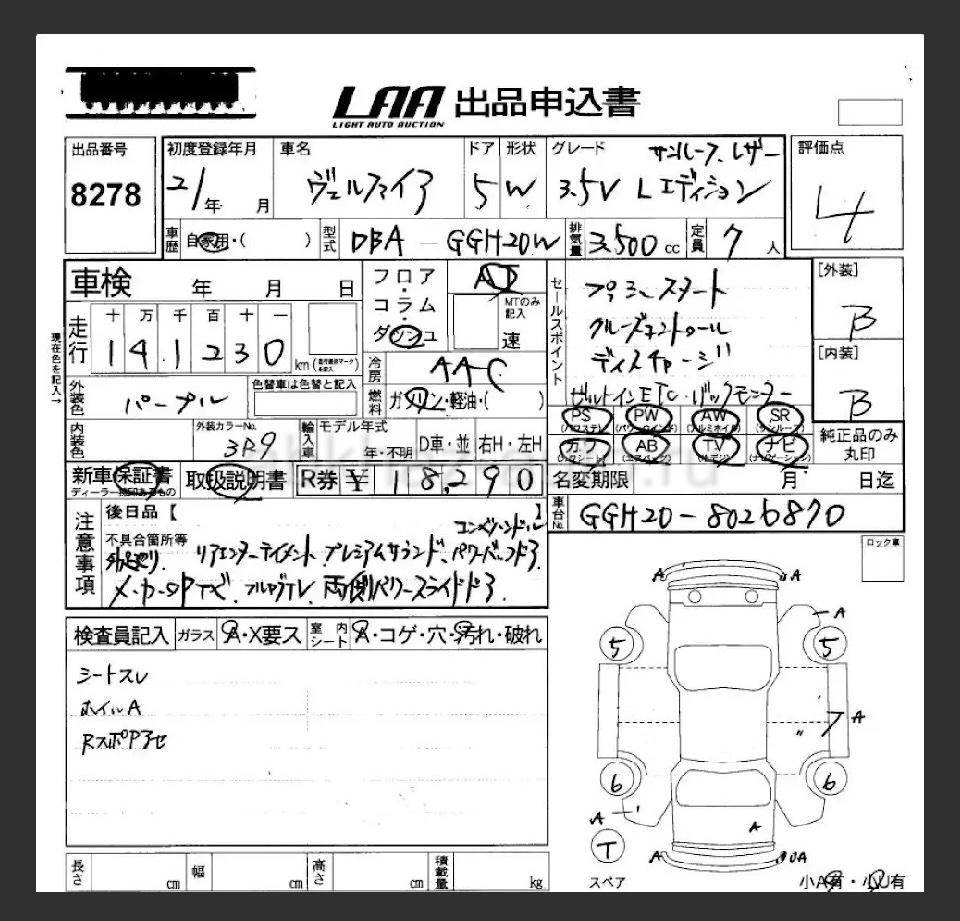 LAA 出品申込書
LIGHT AUTO AUCTION
出品番号 初度登録年月 車名 ドア 形状 グレード サンルーフ、レザー 評価点
8278 21年 月 ヴェルファイア 5 W 3.5V Lエディション 4
車歴 自家用・( ) 型式 DBA - GGH20W 排気量 3500 cc 定員 7 人
車検 年 月 日 フロア・コラム ダッシュ AT セールスポイント プッシュスタート [外装]
MTのみ記入 速 クルーズコントロール B
走行 十 万 千 百 十 一 ディスチャージ [内装]
141230 km 冷房 AAC ビルトインETC、バックモニター B
現在色を記入→
外装色 パープル 色替車は色替と記入 燃料 ガソリン・軽油・( ) PS PW AW SR
(パワステ) (パワーウインド) (アルミホイル) (サンルーフ)
内装色 外装カラーNo. 3R9 輸入車 モデル年式 年・不明 D車・並 右H・左H カワ AB TV ナビ 純正品のみ丸印
(エアバック) (ナビゲーション)
新車保証書 取扱説明書 R券 ¥ 18,290 名変期限 月 日迄
車台No. GGH20-8026870
注意事項 後日品【 】
コンビハンドル
不具合箇所等 リアエンターテイメント プレミアムサウンド、パワーバックドア
メーカーOPナビ、フルセグTV、両側パワースライドドア
ロック車
検査員記入 ガラス A・X要ス 室内シート A・コゲ・穴・汚れ・破れ
シートスレ
ホイルA
RスポPアセ
A A
A
5 5
A
〃 ア
6 6
A
A
T
A UA
スペア 小A有・小U有
長さ cm 幅 cm 高さ cm 積載量 kg